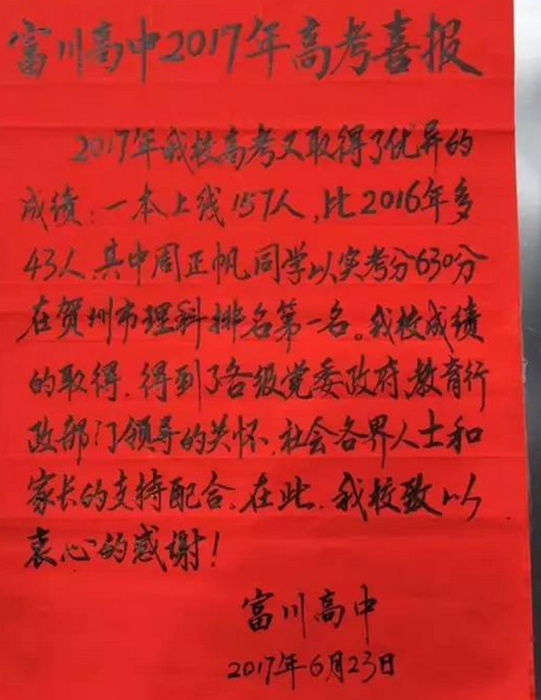 富川高中2017年高考喜报
2017年我校高考又取得了优异的
成绩：一本上线157人，比2016年多
43人，其中周正帆同学以实考分630分
在贺州市理科排名第一名。我校成绩
的取得，得到了各级党委政府、教育行
政部门领导的关怀，社会各界人士和
家长的支持配合。在此，我校致以
衷心的感谢！
富川高中
2017年6月23日